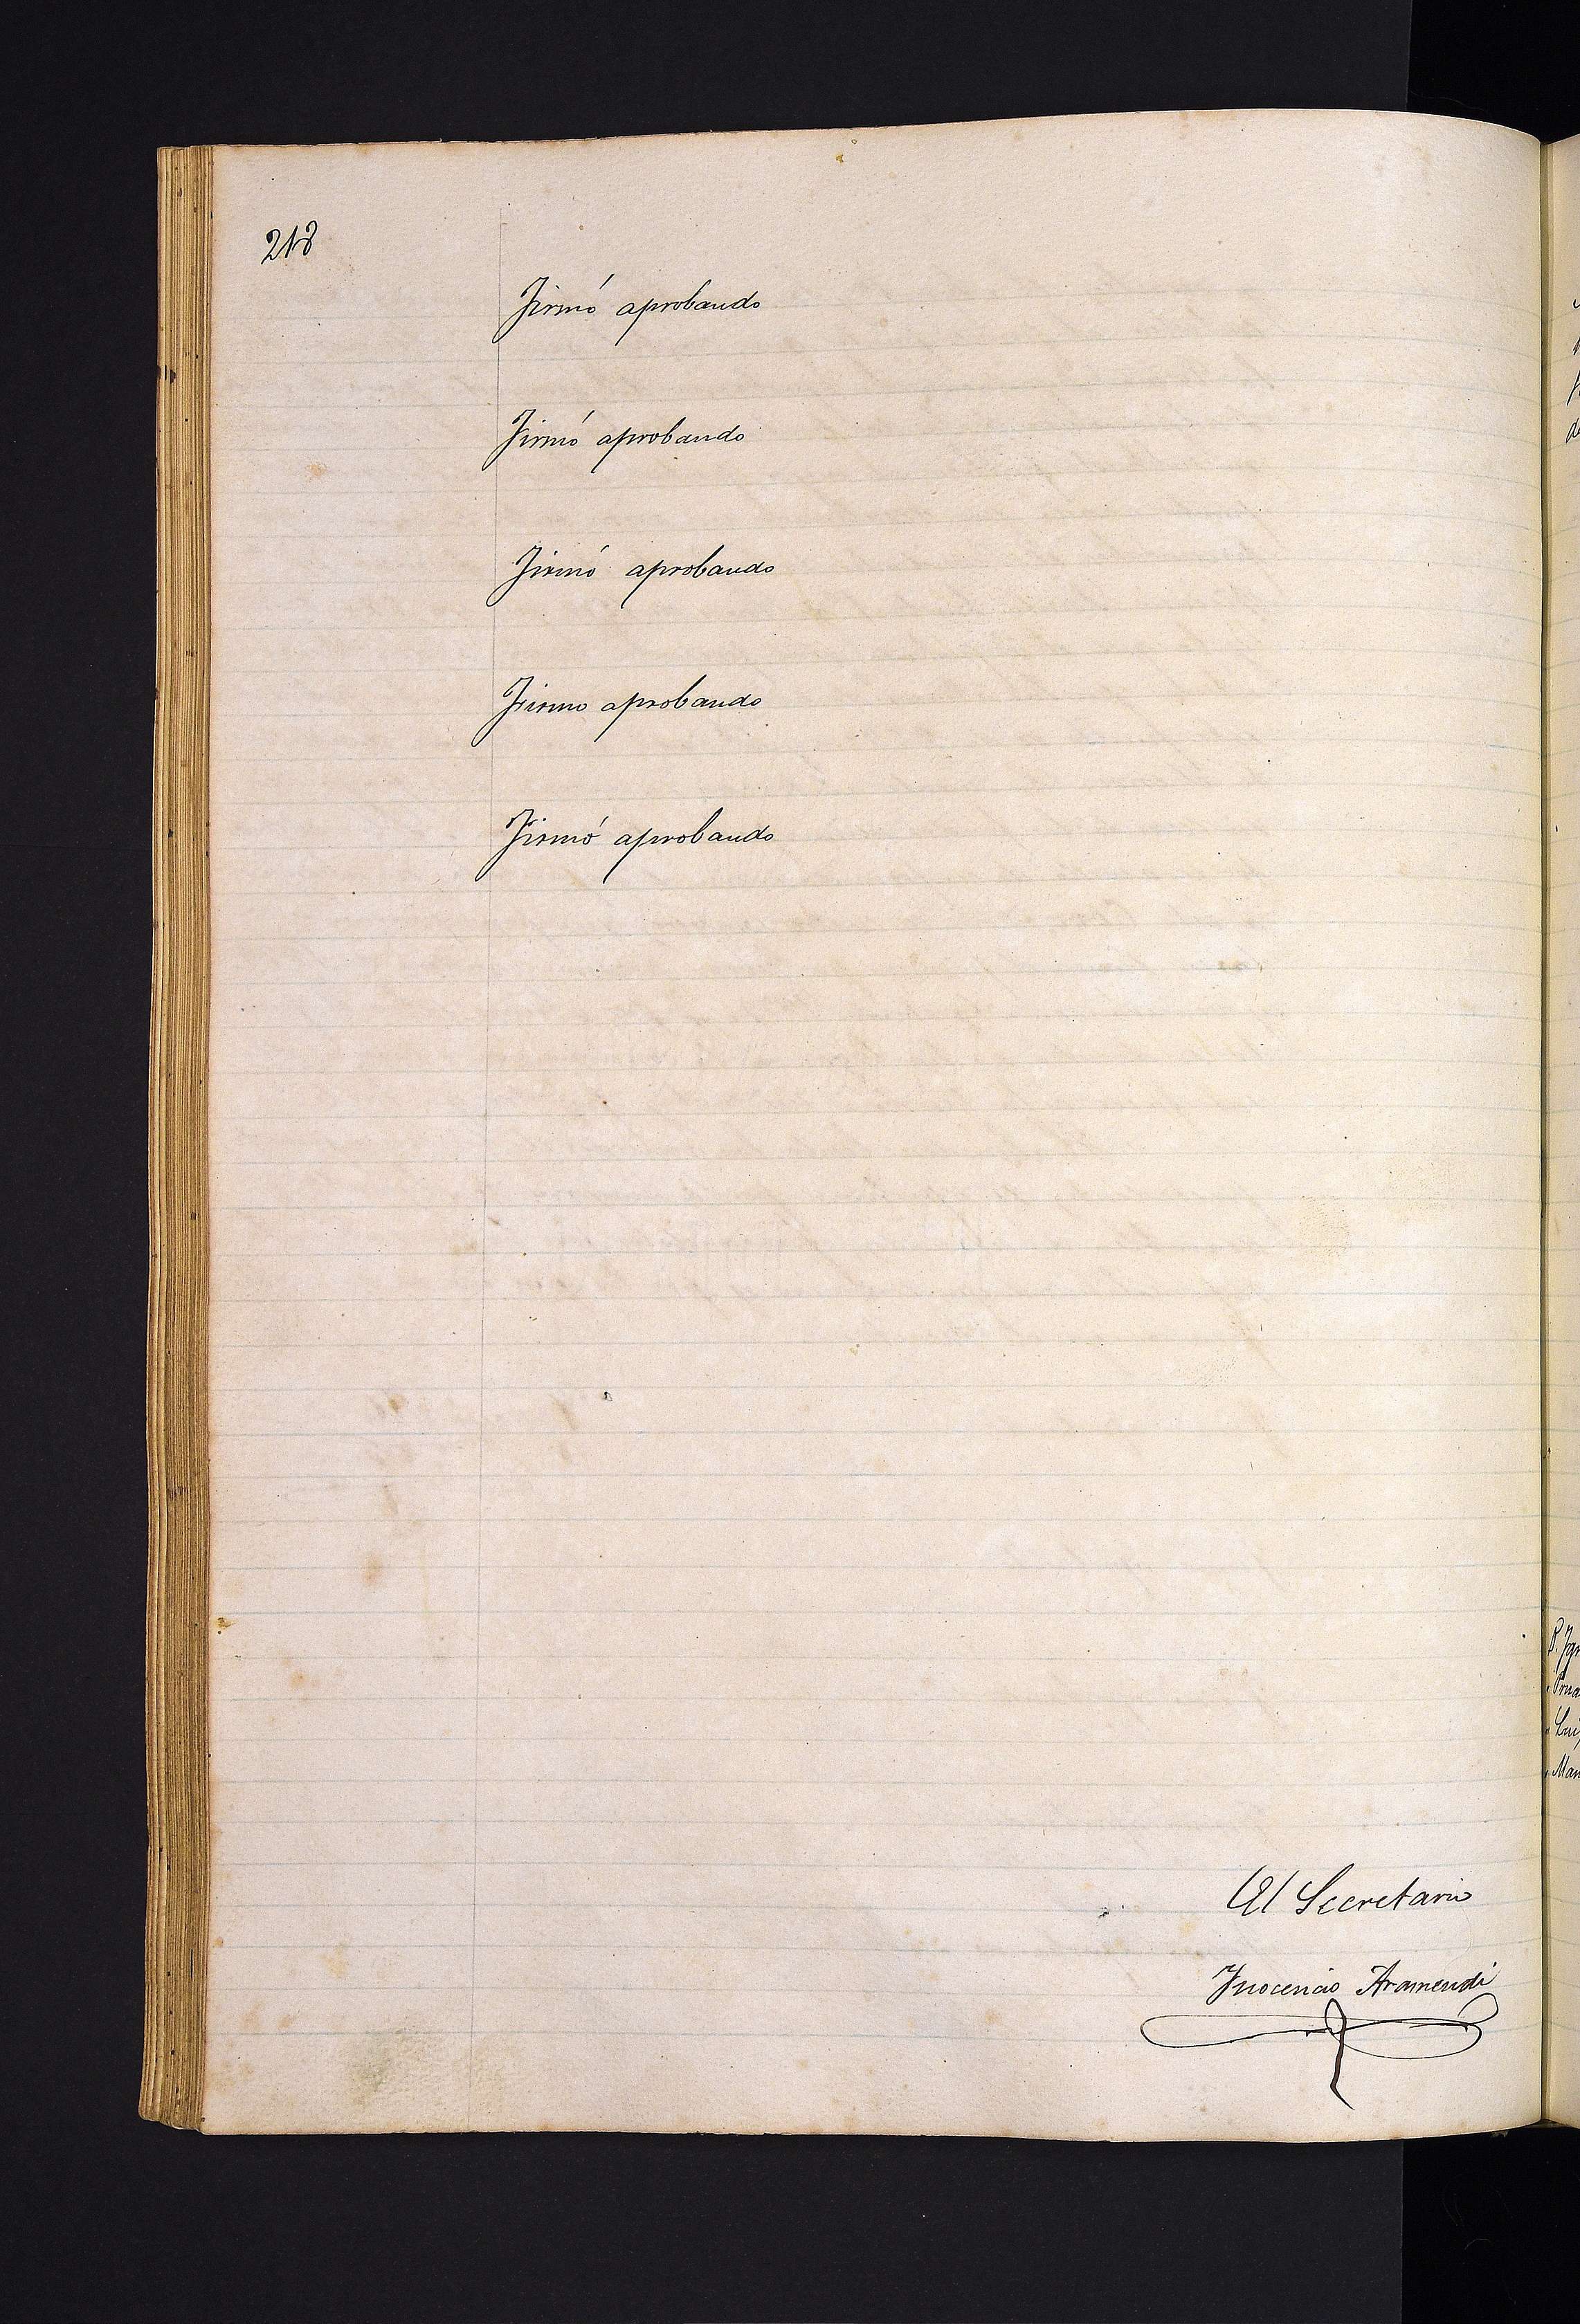 218
Firmó aprobando
Firmó aprobando
Firmó aprobando
Firmo aprobando
Firmó aprobando
El Secretario
Inocencio Aramendi